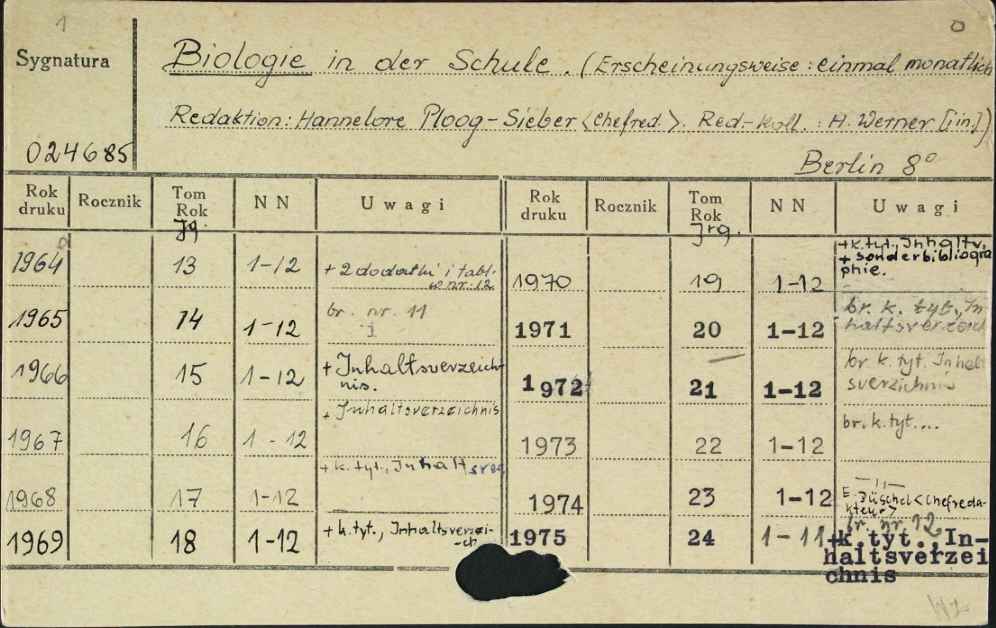 1
0
Sygnatura
Biologie in der Schule. (Erscheinungsweise: einmal monatlich
Redaktion: Hannelore Ploog-Sieber <Chefred.>. Red.-Koll.: H. Werner [i in.])
024685
Berlin 8°
Rok druku Rocznik Tom Rok NN Uwagi Rok druku Rocznik Tom Rok NN Uwagi
Jg. Jrg.
1964 13 1-12 + 2 dodatki i tabl. w nr. 12
1965 14 1-12 br. nr. 11
1966 15 1-12 + Inhaltsverzeichnis.
1967 16 1-12 + Inhaltsverzeichnis
1968 17 1-12 + k. tyt., Inhaltsver
1969 18 1-12 + k. tyt., Inhaltsverzei-ch
1970 19 1-12 + k. tyt., Inhaltv. + sonderbibliographie.
1971 20 1-12 br. k. tyt., Inhaltsverzeich
1972 21 1-12 br k. tyt. Inhaltsverzichnis
1973 22 1-12 br. k. tyt....
1974 23 1-12 -"- E. Düschel <Chefredakteur>
1975 24 1-11 br. nr. 12 +k. tyt., Inhaltsverzeichnis